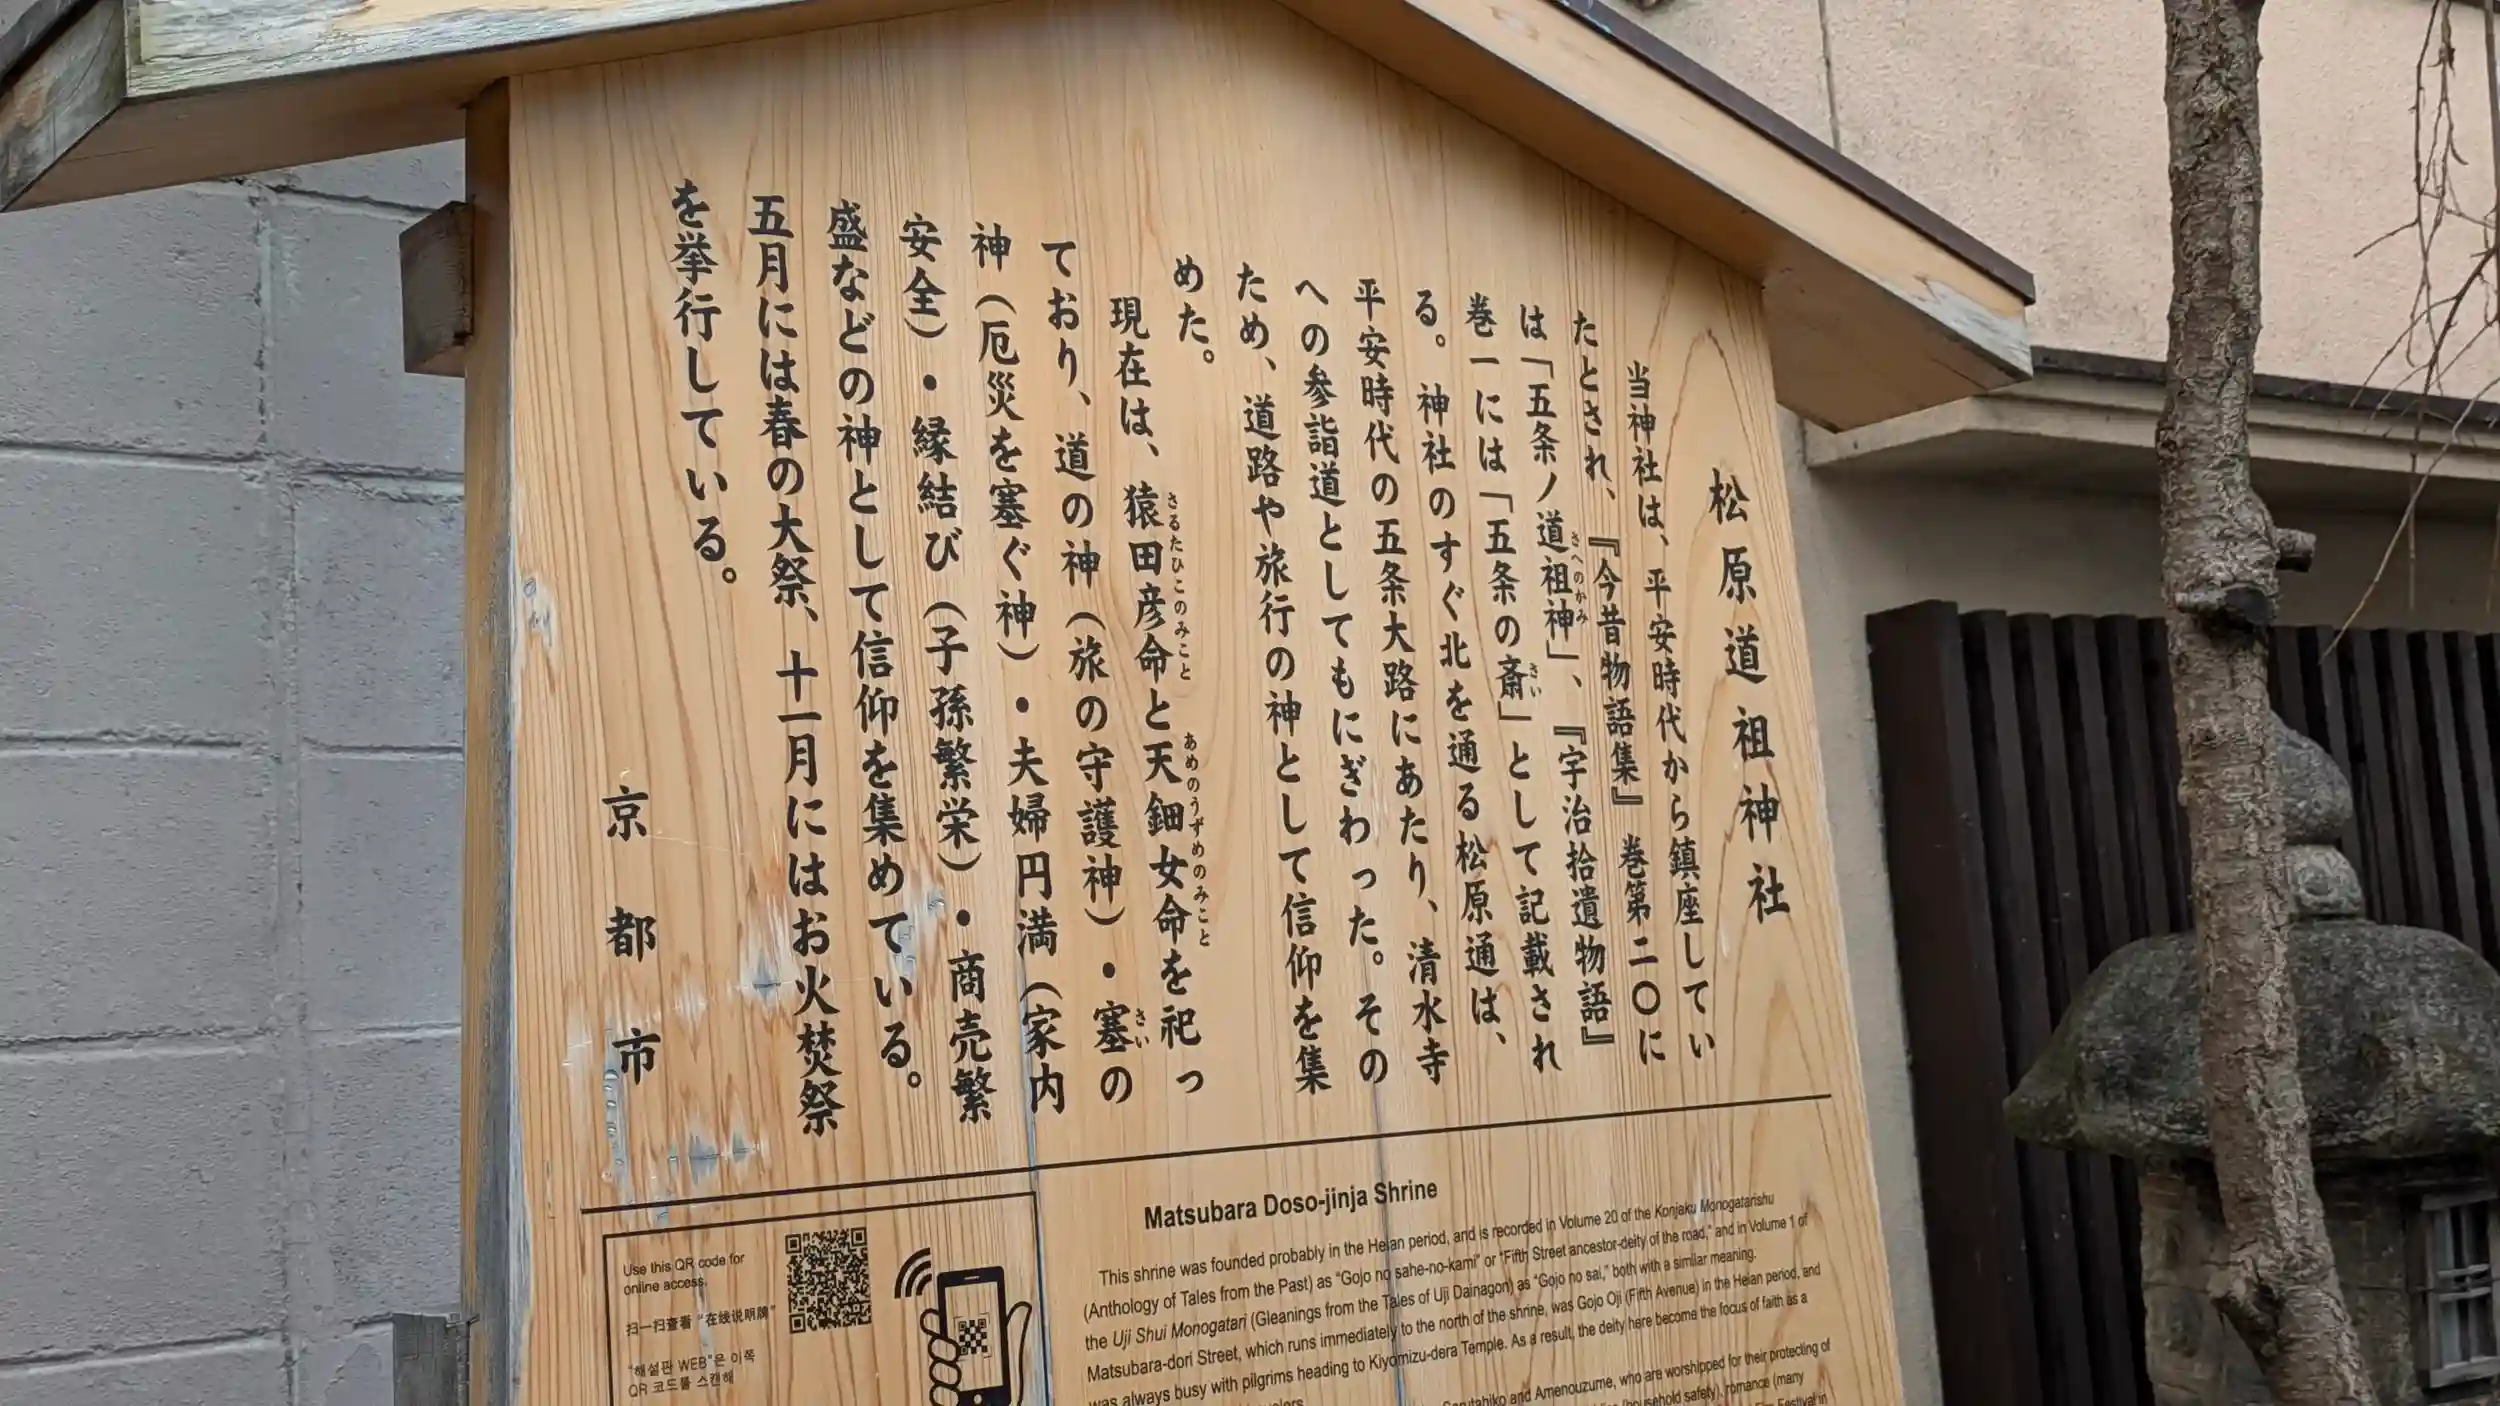 松原道祖神社
当神社は、平安時代から鎮座してい
たとされ、『今昔物語集』巻第二〇に
は「五条ノ道祖神」、『宇治拾遺物語』
さへのかみ
巻一には「五条の斎」として記載され
さい
る。神社のすぐ北を通る松原通は、
平安時代の五条大路にあたり、清水寺
への参詣道としてもにぎわった。その
ため、道路や旅行の神として信仰を集
めた。
現在は、猿田彦命と天鈿女命を祀っ
さるたひこのみこと
あめのうずめのみこと
ており、道の神（旅の守護神）・塞の
さい
神（厄災を塞ぐ神）・夫婦円満（家内
安全）・縁結び（子孫繁栄）・商売繁
盛などの神として信仰を集めている。
五月には春の大祭、十一月にはお火焚祭
を挙行している。
京都市
Matsubara Doso-jinja Shrine
This shrine was founded probably in the Heian period, and is recorded in Volume 20 of the Konjaku Monogatarishu
(Anthology of Tales from the Past) as “Gojo no sahe-no-kami” or “Fifth Street ancestor-deity of the road,” and in Volume 1 of
the Uji Shui Monogatari (Gleanings from the Tales of Uji Dainagon) as “Gojo no sai,” both with a similar meaning.
Matsubara-dori Street, which runs immediately to the north of the shrine, was Gojo Oji (Fifth Avenue) in the Heian period, and
was always busy with pilgrims heading to Kiyomizu-dera Temple. As a result, the deity here become the focus of faith as a
Sarutahiko and Amenouzume, who are worshipped for their protecting of
(household safety), romance (many
Festival in
Use this QR code for
online access.
扫一扫查看“在线说明牌”
“해설판 WEB”은 이쪽
QR 코드를 스캔해